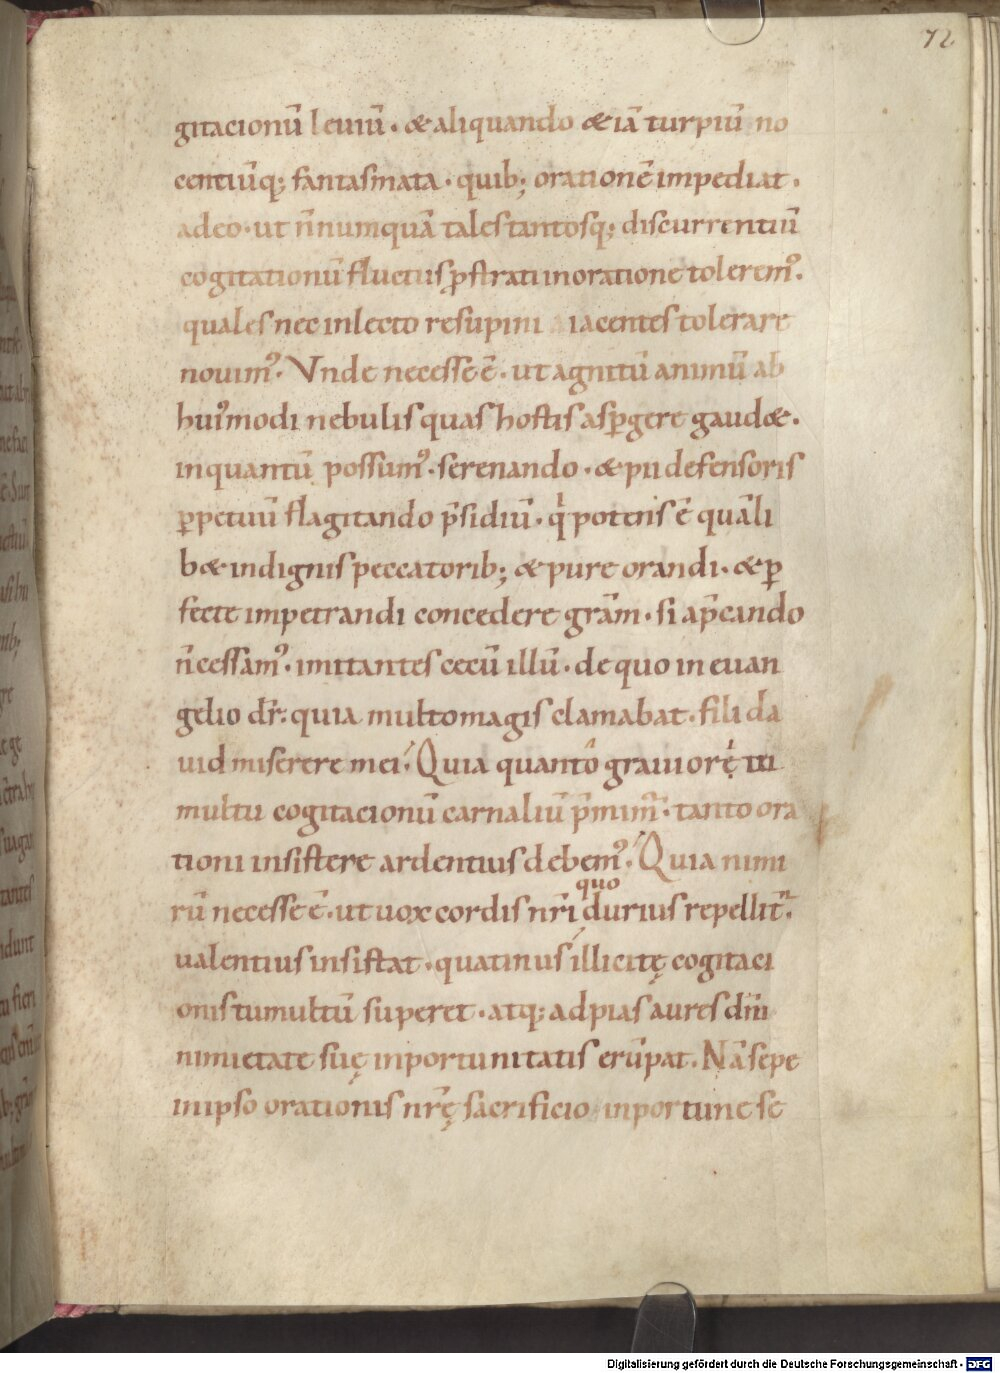 72
gitacionū leuiū · & aliquando & iā turpiū no
centiūq; fantasmata · quib; orationē impediat ·
adeo · ut n̄numquā tales tantosq; discurrentiū
cogitationū fluctus ꝓstrati in oratione toleremꝰ.
quales nec in lecto resupini iacentes tolerare
nouimꝰ. Vnde necesse ē · ut agnitū animū ab
huiꝰmodi nebulis quas hostis asꝑgere gaud& ·
in quantū possumꝰ · serenando · & pii defensoris
ꝑpetuū flagitando p̄sidiū · qͥ potens ē quāli
b& indignis peccatorib; & pure orandi · & ꝑ
fecte impetrandi concedere grām · si ap̄cando
n̄ cessamꝰ · imitantes cecū illū · de quo in euan
gelio dr̄: quia multo magis clamabat · fili da
uid miserere mei; Quia quanto grauiorę tu
multu cogitacionū carnaliū p̄mimur̄ · tanto ora
tioni insistere ardentius debemꝰ; Quia nimi
quo
rū necesse ē · ut uox cordis nr̄i durius repellit̄ ·
ualentius insistat · quatinus illicitę cogitaci
onis tumultū superet · atq; ad pias aures dn̄i
nimietate suę inportunitatis erūpat. Nā sepe
in ipso orationis nr̄ę sacrificio inportune se
Digitalisierung gefördert durch die Deutsche Forschungsgemeinschaft - DFG